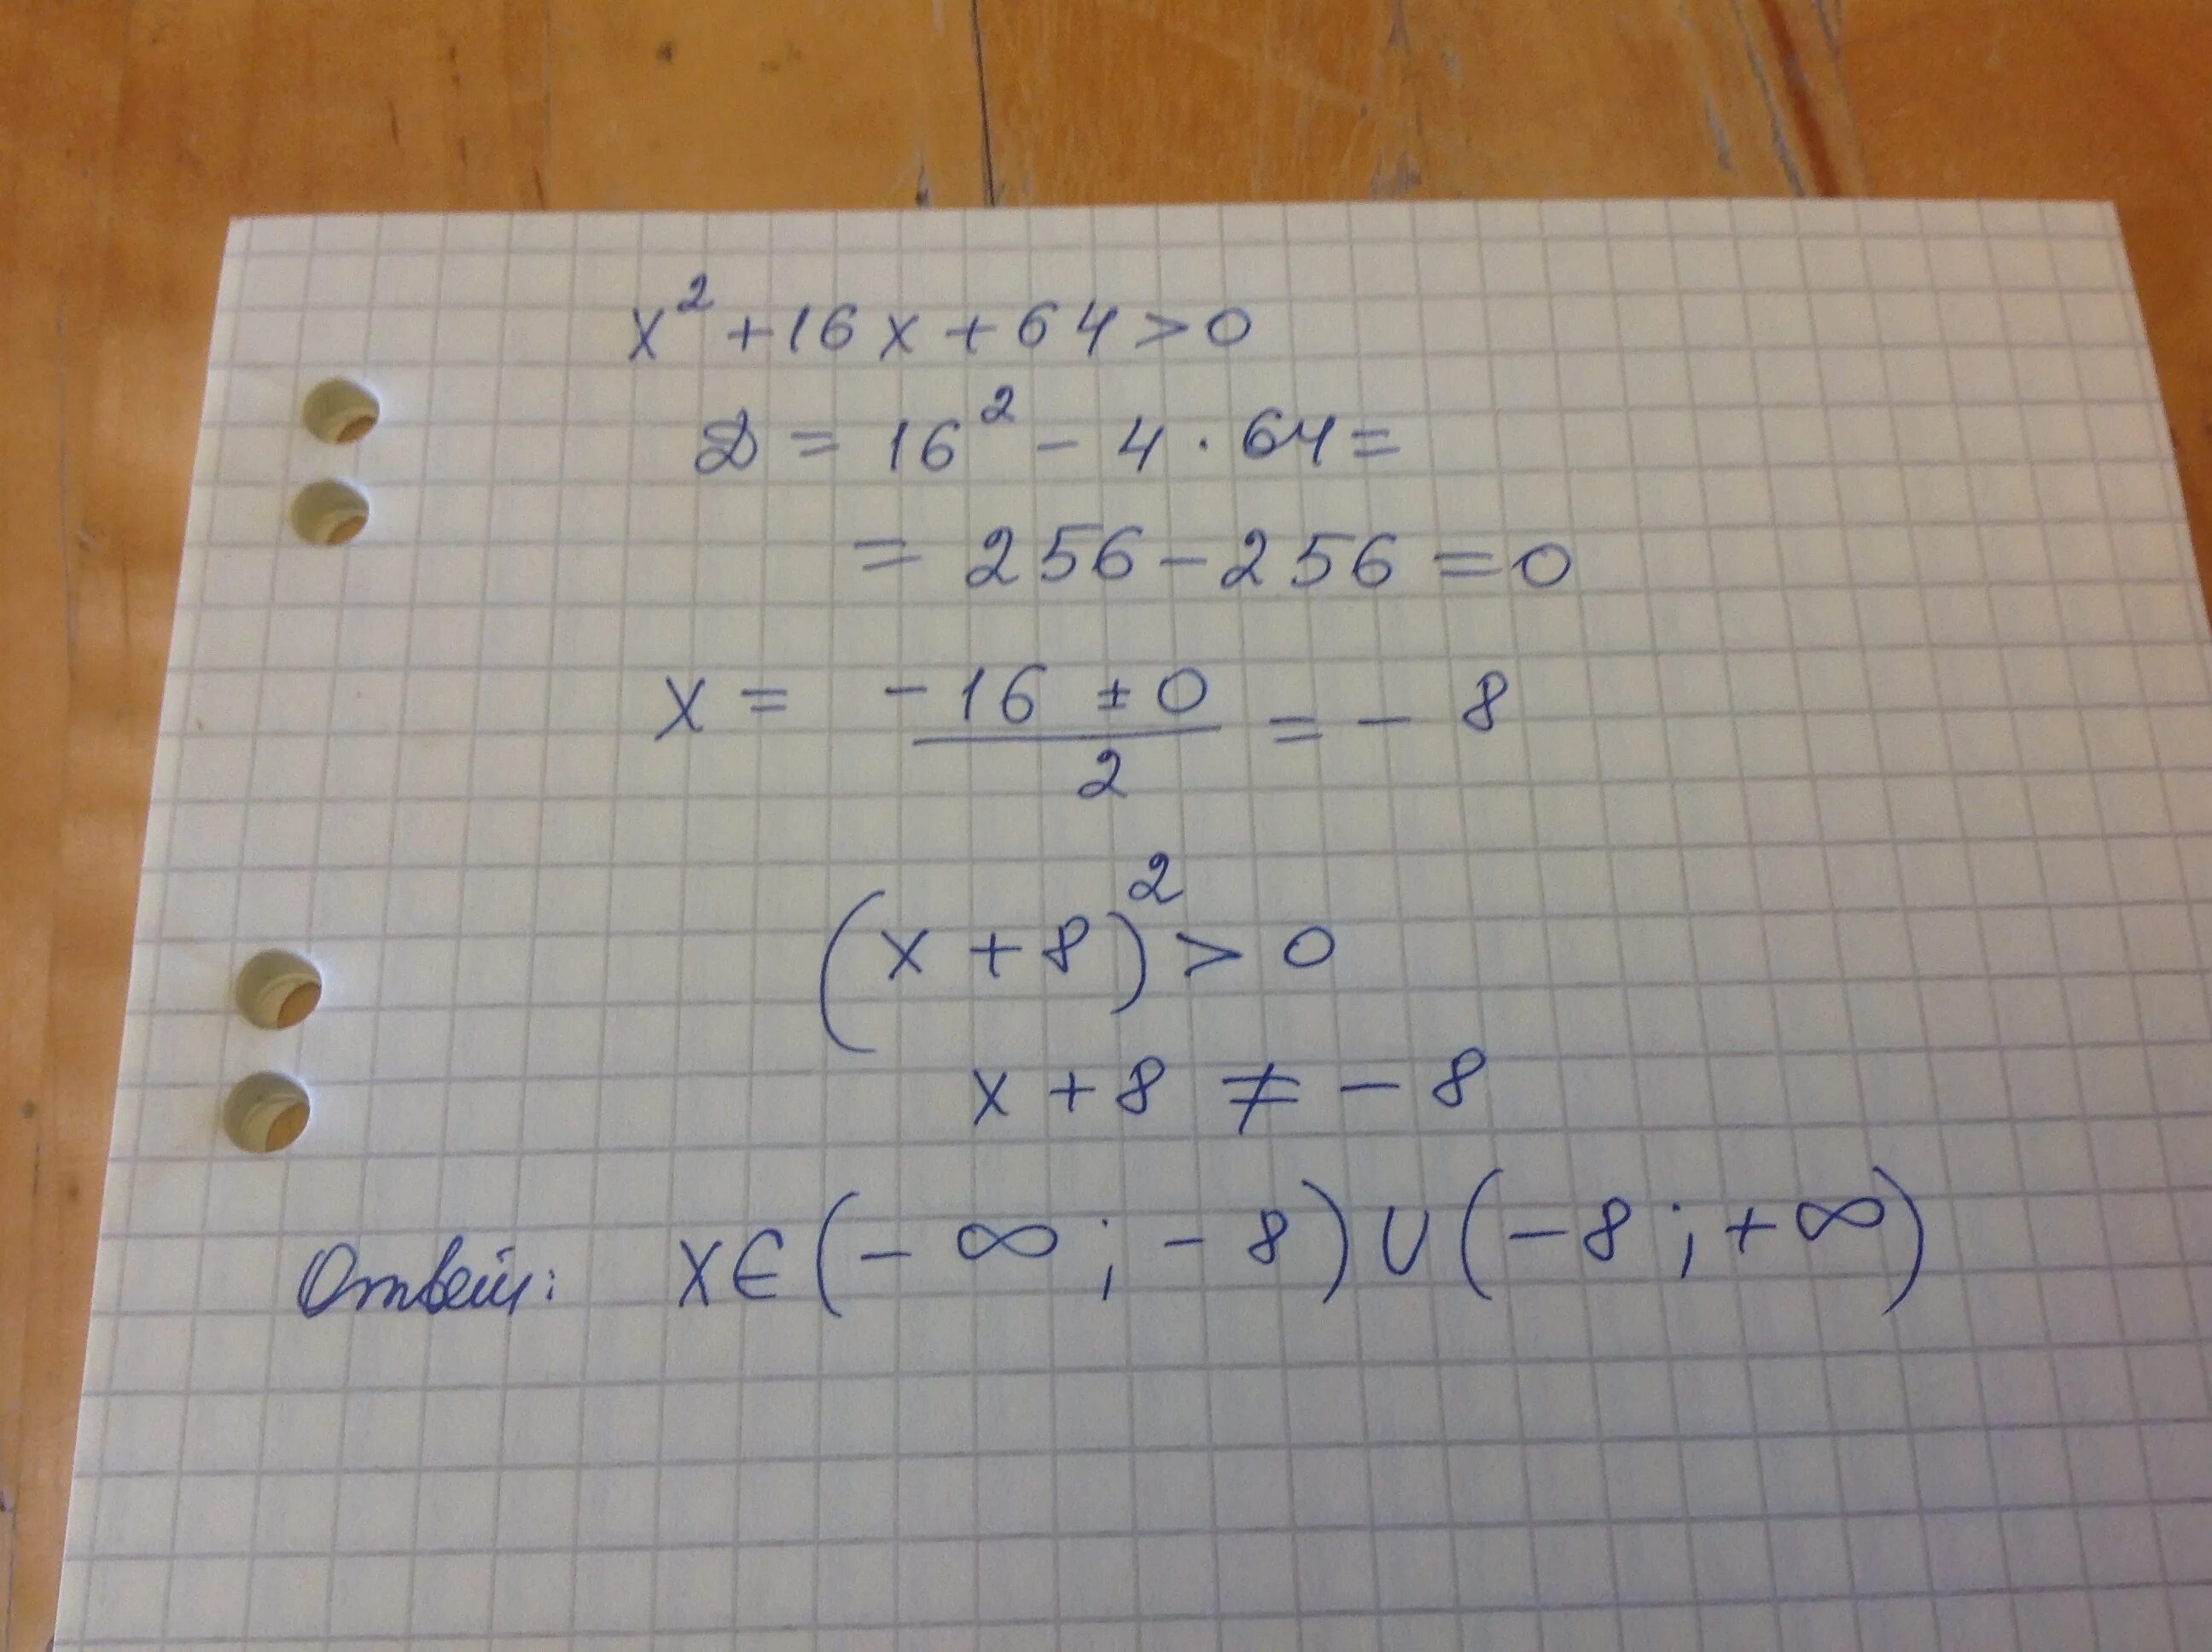 x² + 16x + 64 > 0
D = 16² - 4 · 64 =
= 256 - 256 = 0
x = (-16 ± 0) / 2 = - 8
(x + 8)² > 0
x + 8 ≠ - 8
Ответ: x ∈ (- ∞ ; - 8) ∪ (- 8 ; + ∞)